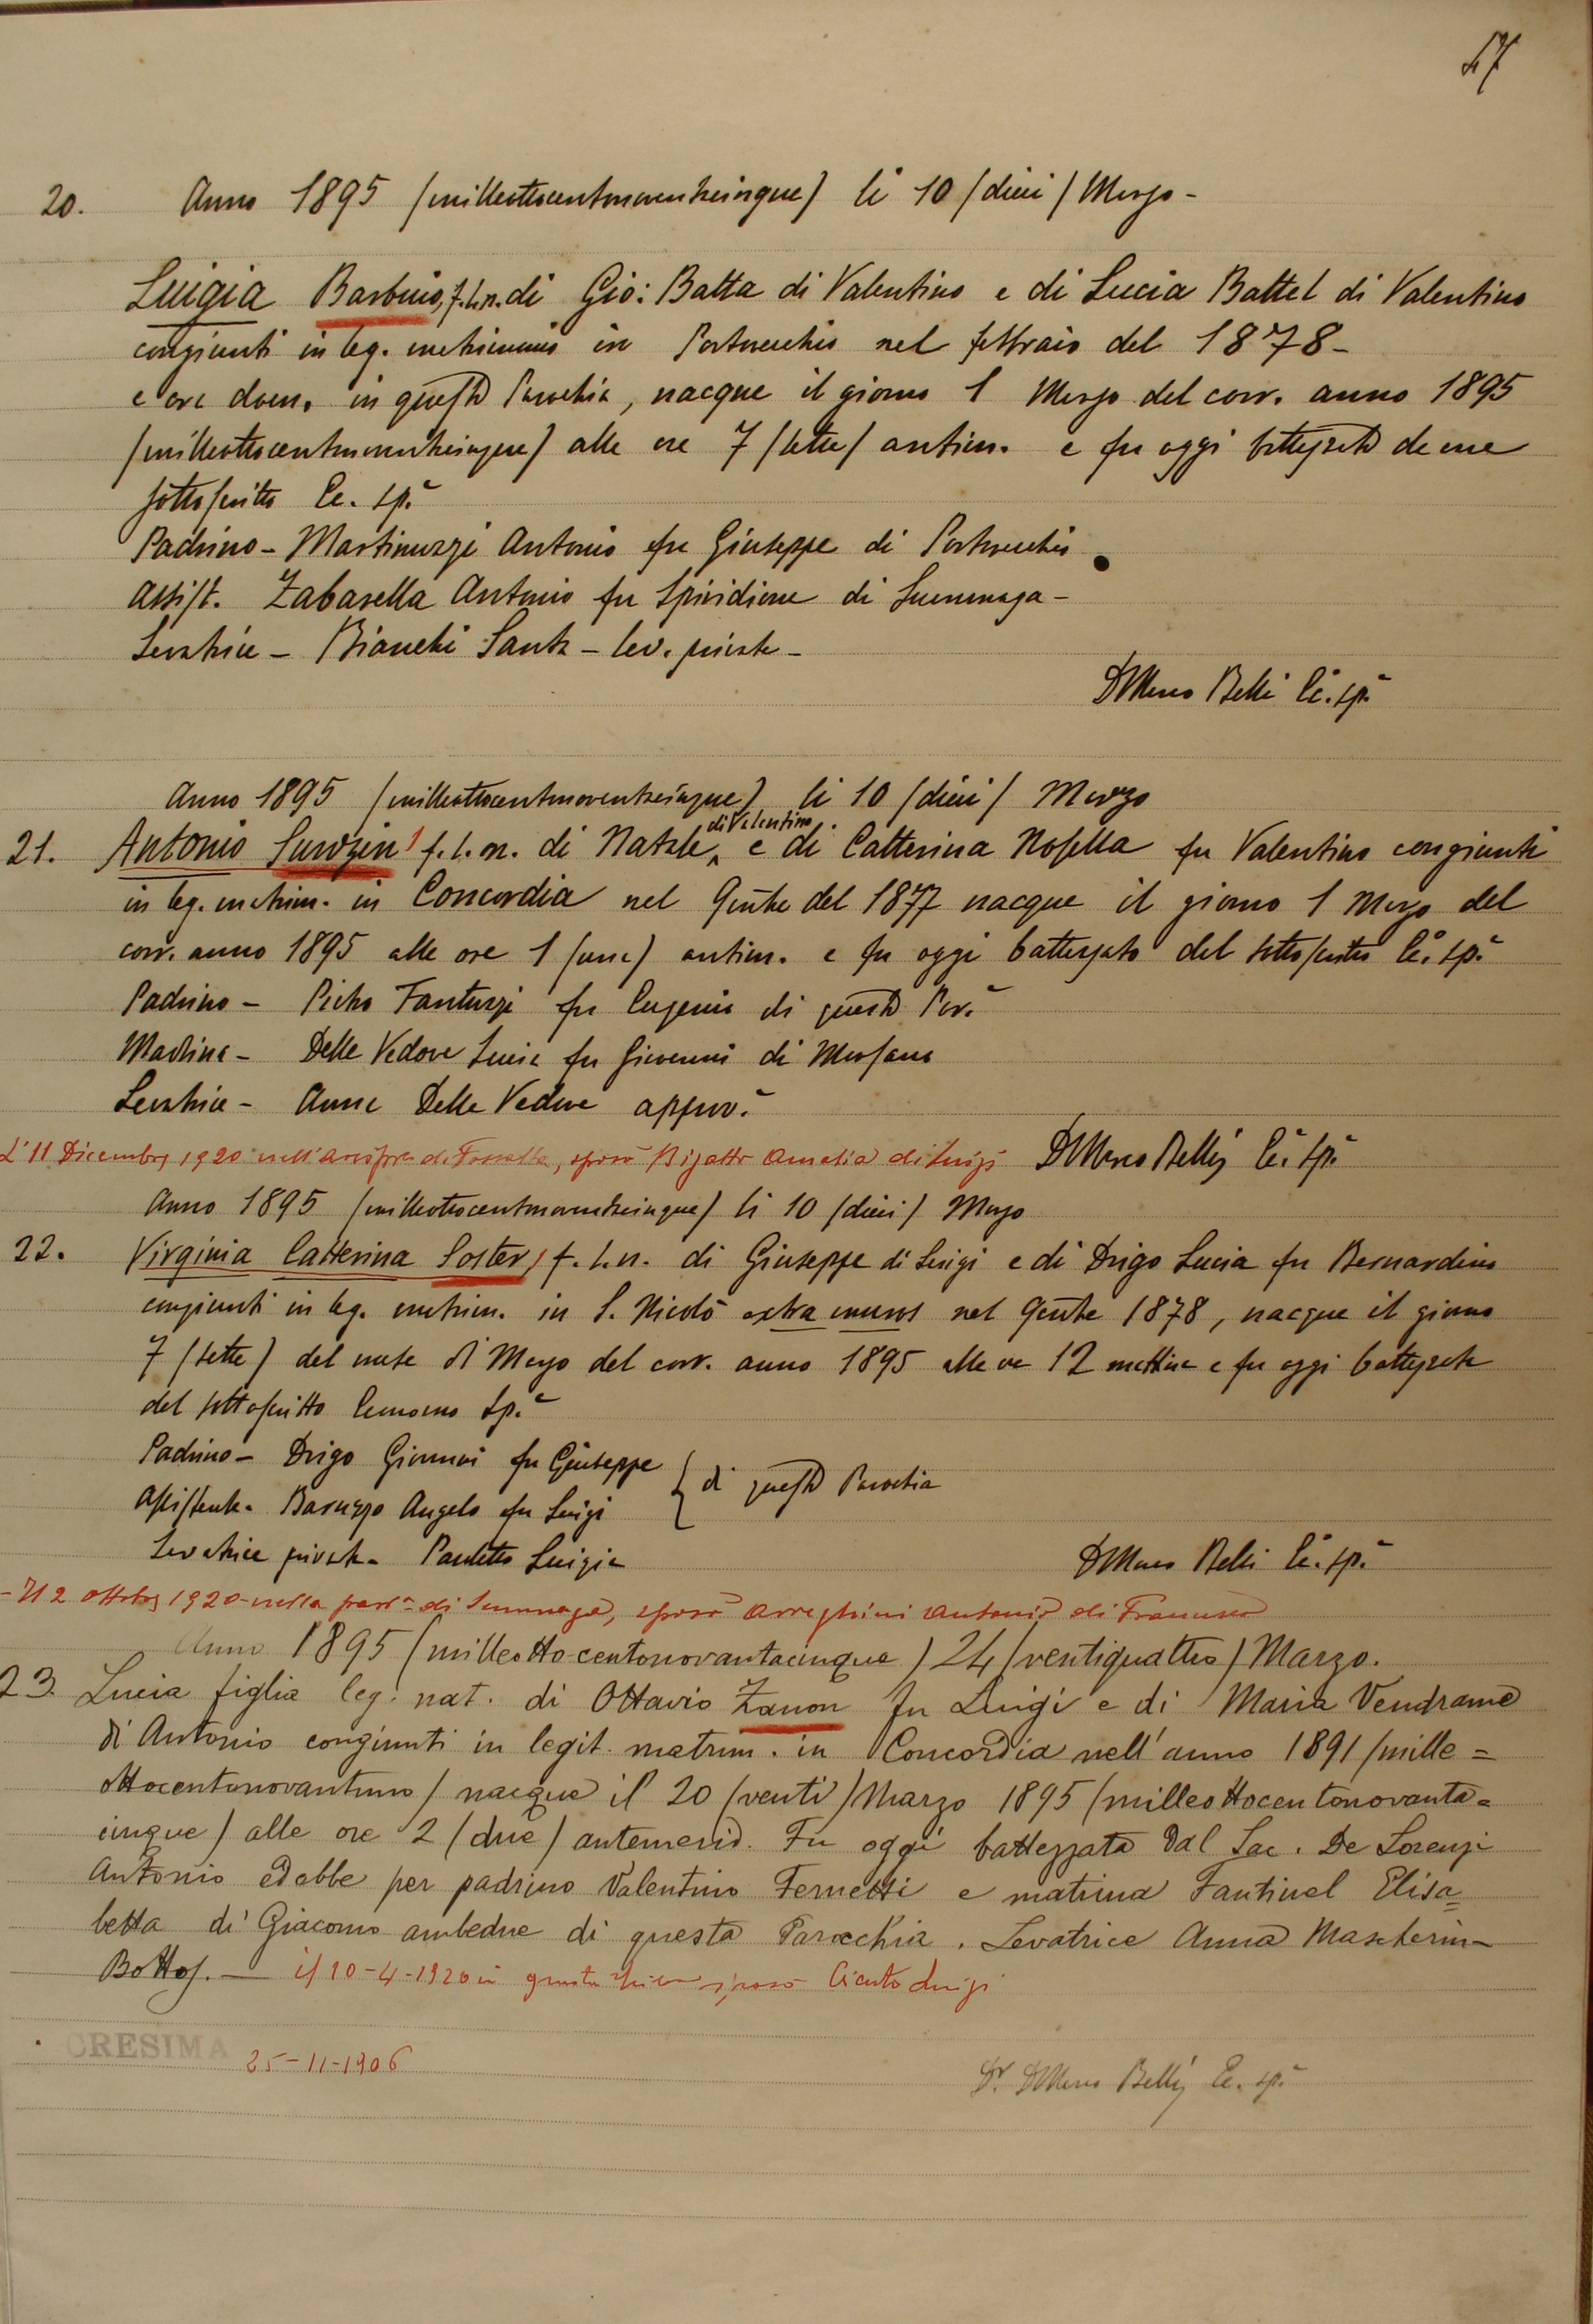 47
20. Anno 1895 (millottocentonovantacinque) li 10 (dieci) Marzo -
Luigia Barbuio, f.l.n. di Gio: Batta di Valentino e di Lucia Battel di Valentino
congiunti in leg. matrimonio in Portovecchio nel febbraio del 1878 -
e ora dom. in questa Parochia, nacque il giorno 1 Marzo del corr. anno 1895
(millottocentonovantacinque) alle ore 7 (sette) antim. e fu oggi battezzata da me
sottoscritto Ec. sp.
Padrino - Martinuzzi Antonio fu Giuseppe di Portovecchio
Assist. Zabarella Antonio fu Spiridione di Summaga -
Levatrice - Bianchi Santa - lev. privata -
D Marco Belli Ec. sp.
Anno 1895 (millottocentonovantacinque) li 10 (dieci) Marzo
21. Antonio f.l.n. di Natale di Valentino e di Catterina Nosella fu Valentino congiunti
in leg. matrim. in Concordia nel 1877 nacque il giorno 1 Marzo del
corr. anno 1895 alle ore 1 (una) antim. e fu oggi battezzato dal sottoscritto Ec. sp.
Padrino - Pietro Fantuzzi fu Eugenio di questa Par.
Madrina - Delle Vedove Lucia fu Giovanni di Morsano
Levatrice - Anna Delle Vedove approv.
L'11 Dicembre 1920 nell'arcipr. di Fossalta, sposò Amalia di Luigi D Marco Belli Ec. sp.
Anno 1895 (millottocentonovantacinque) li 10 (dieci) Marzo
22. Virginia Catterina Soster, f.l.n. di Giuseppe di Luigi e di Drigo Lucia fu Bernardino
congiunti in leg. matrim. in S. Nicolò extra muros nel 1878, nacque il giorno
7 (sette) del mese di Marzo del corr. anno 1895 alle ore 12 mattina e fu oggi battezzata
dal sottoscritto sp.
Padrino - Drigo Giovanni fu Giuseppe
Assistente - Baruzzo Angelo fu Luigi } di questa Parochia
Levatrice privata - Pauletto Luigia
D Marco Belli Ec. sp.
- Il 2 ottobre 1920 nella parr. di Summaga, sposò Arreghini Antonio di Francesco
Anno 1895 (milleottocentonovantacinque) 24 (ventiquattro) Marzo.
23. Lucia figlia leg. nat. di Ottavio Zanon fu Luigi e di Maria Vendrame
di Antonio congiunti in legit. matrim. in Concordia nell'anno 1891 (mille=
ottocentonovantuno) nacque il 20 (venti) Marzo 1895 (milleottocentonovanta=
cinque) alle ore 2 (due) antemerid. Fu oggi battezzata dal Sac. De Lorenzi
Antonio ed ebbe per padrino Valentino Fernetti e matrina Fantinel Elisa=
betta di Giacomo ambedue di questa Parocchia. Levatrice Anna Mascherin-
Bottos. — il 10-4-1920 in questa sposò Luigi
CRESIMA 25-11-1906
Dr. D Marco Belli Ec. sp.